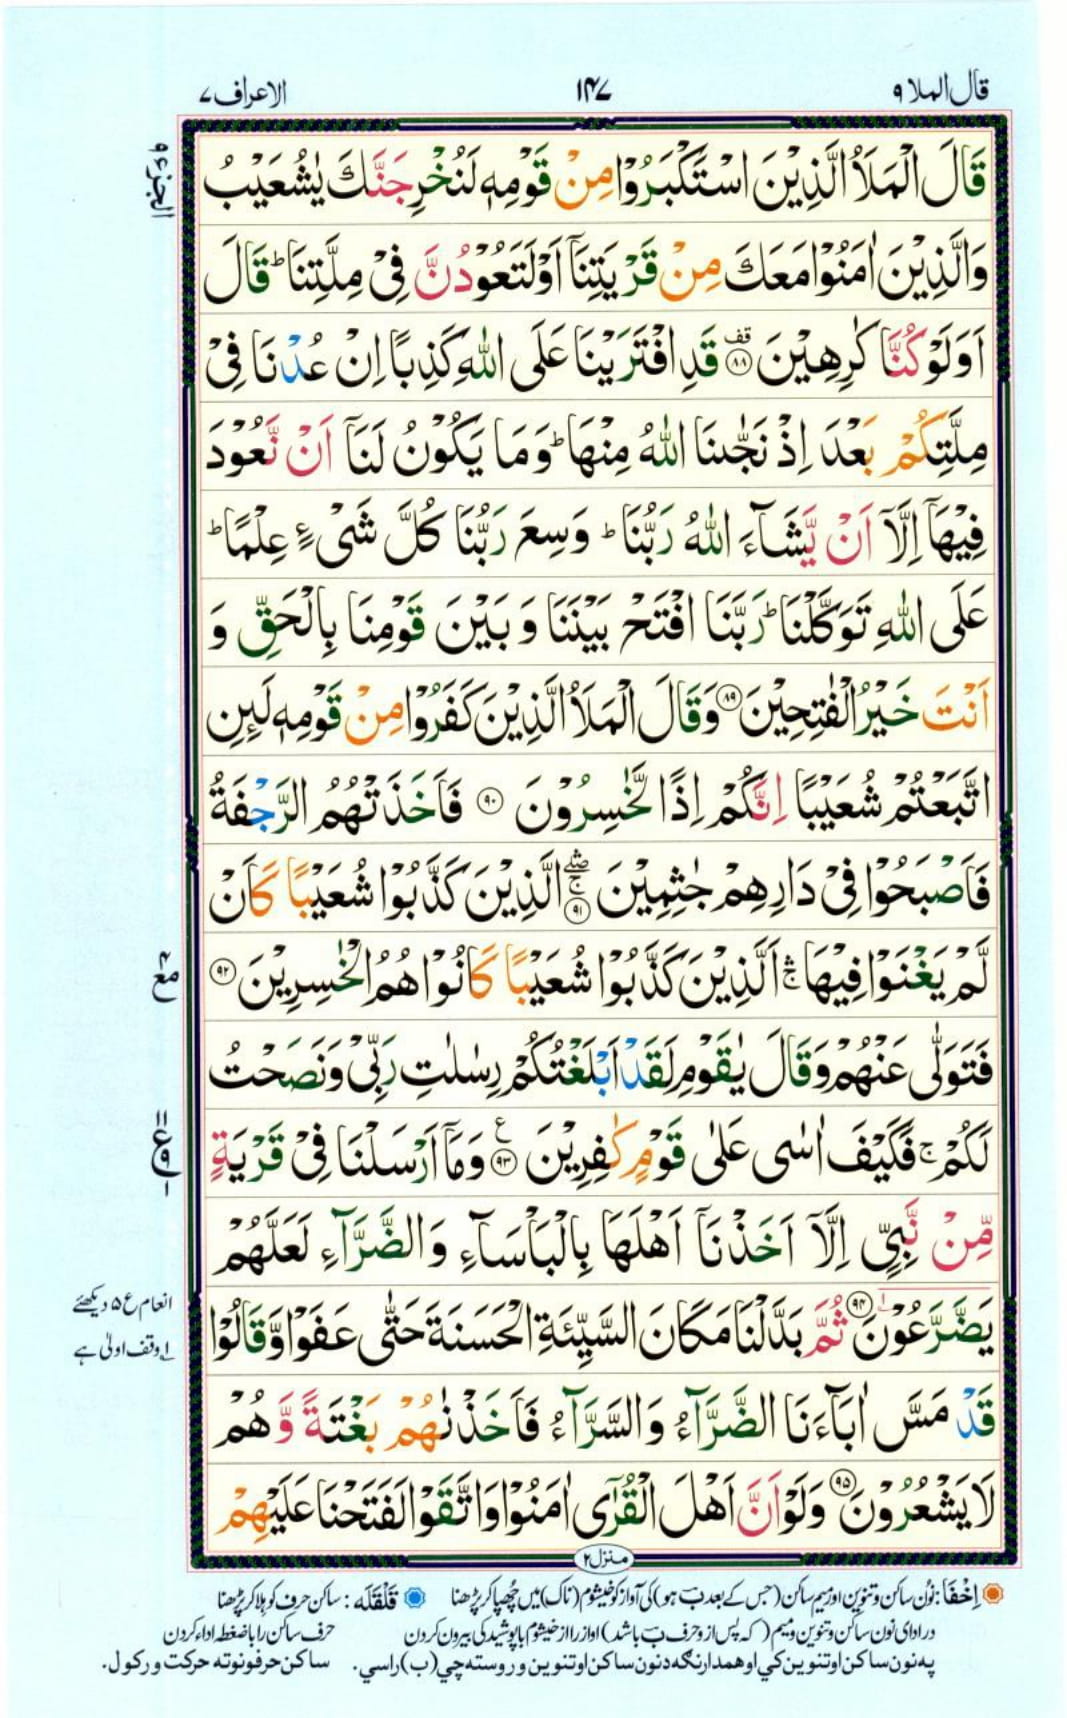 قال الملا ۹
۱۴۷
الاعراف ۷
الجزء ۹
قَالَ الْمَلَاُ الَّذِيْنَ اسْتَكْبَرُوْا مِنْ قَوْمِهٖ لَنُخْرِجَنَّكَ يٰشُعَيْبُ
وَالَّذِيْنَ اٰمَنُوْا مَعَكَ مِنْ قَرْيَتِنَاۤ اَوْ لَتَعُوْدُنَّ فِيْ مِلَّتِنَا ؕ قَالَ
اَوَلَوْ كُنَّا كٰرِهِيْنَ ۟ قف ۸۸ قَدِ افْتَرَيْنَا عَلَى اللّٰهِ كَذِبًا اِنْ عُدْنَا فِيْ
مِلَّتِكُمْ بَعْدَ اِذْ نَجّٰىنَا اللّٰهُ مِنْهَا ؕ وَمَا يَكُوْنُ لَنَاۤ اَنْ نَّعُوْدَ
فِيْهَاۤ اِلَّاۤ اَنْ يَّشَآءَ اللّٰهُ رَبُّنَا ؕ وَسِعَ رَبُّنَا كُلَّ شَيْءٍ عِلْمًا ؕ
عَلَى اللّٰهِ تَوَكَّلْنَا ؕ رَبَّنَا افْتَحْ بَيْنَنَا وَبَيْنَ قَوْمِنَا بِالْحَقِّ وَ
اَنْتَ خَيْرُ الْفٰتِحِيْنَ ۸۹ وَقَالَ الْمَلَاُ الَّذِيْنَ كَفَرُوْا مِنْ قَوْمِهٖ لَىِٕنِ
اتَّبَعْتُمْ شُعَيْبًا اِنَّكُمْ اِذًا لَّخٰسِرُوْنَ ۹۰ فَاَخَذَتْهُمُ الرَّجْفَةُ
فَاَصْبَحُوْا فِيْ دَارِهِمْ جٰثِمِيْنَ ۹۱ الَّذِيْنَ كَذَّبُوْا شُعَيْبًا كَاَنْ
لَّمْ يَغْنَوْا فِيْهَا ۛۚ اَلَّذِيْنَ كَذَّبُوْا شُعَيْبًا كَانُوْا هُمُ الْخٰسِرِيْنَ ۹۲
مع
فَتَوَلّٰى عَنْهُمْ وَقَالَ يٰقَوْمِ لَقَدْ اَبْلَغْتُكُمْ رِسٰلٰتِ رَبِّيْ وَنَصَحْتُ
لَكُمْ ۚ فَكَيْفَ اٰسٰى عَلٰى قَوْمٍ كٰفِرِيْنَ ۹۳ ع وَمَاۤ اَرْسَلْنَا فِيْ قَرْيَةٍ
۱۱
ع
۹
۱
مِّنْ نَّبِيٍّ اِلَّاۤ اَخَذْنَاۤ اَهْلَهَا بِالْبَاْسَآءِ وَالضَّرَّآءِ لَعَلَّهُمْ
يَضَّرَّعُوْنَ ۹۴ ثُمَّ بَدَّلْنَا مَكَانَ السَّيِّئَةِ الْحَسَنَةَ حَتّٰى عَفَوْا وَّقَالُوْا
انعام ع ۵ دیکھئے
۱ وقف اولیٰ ہے
قَدْ مَسَّ اٰبَآءَنَا الضَّرَّآءُ وَالسَّرَّآءُ فَاَخَذْنٰهُمْ بَغْتَةً وَّهُمْ
لَا يَشْعُرُوْنَ ۹۵ وَلَوْ اَنَّ اَهْلَ الْقُرٰۤى اٰمَنُوْا وَاتَّقَوْا لَفَتَحْنَا عَلَيْهِمْ
منزل ۲
اِخْفَا: نُون ساکن و تنوین اور میم ساکن (جس کے بعد ب ہو) کی آواز کو خیشوم (ناک) میں چُھپا کر پڑھنا قَلْقَلَہ: ساکن حرف کو ہلا کر پڑھنا
در ادای نون ساکن و تنوین و میم (که پس از و حرف ب باشد) اواز را از خیشوم با پوشیدگی بیرون کردن حرف ساکن را با ضغطه اداء کردن
په نون ساکن او تنوین کي او همدارنګه د نون ساکن او تنوین وروسته چي (ب) راسي. ساکن حرفونو ته حرکت ورکول.